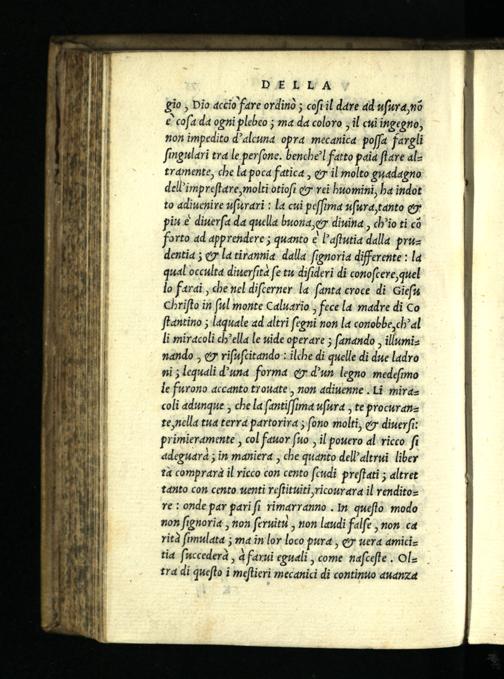 DELLA
gio, Dio acciò fare ordinò; cosi il dare ad usura, nõ
è cosa da ogni plebeo; ma da coloro, il cui ingegno,
non impedito d'alcuna opra mecanica possa fargli
singulari tra le persone. benche'l fatto paia stare al=
tramente, che la poca fatica, & il molto guadagno
dell'imprestare, molti otiosi & rei huomini, ha indot
to adivenire usurari: la cui pessima usura, tanto &
piu è diversa da quella buona, & divina, ch'io ti cõ
forto ad apprendere; quanto è l'astutia dalla pru=
dentia; & la tirannia dalla signoria differente: la
qual occulta diversità se tu disideri di conoscere, quel
lo farai, che nel discerner la santa croce di Giesu
Christo in sul monte Calvario, fece la madre di Co
stantino; laquale ad altri segni non la conobbe, ch'al
li miracoli ch'ella le vide operare; sanando, illumi=
nando, & risuscitando: ilche di quelle di due ladro
ni; lequali d'una forma & d'un legno medesimo
le furono accanto trovate, non adivenne. Li mira=
coli adunque, che la santissima usura, te procuran=
te, nella tua terra partorira; sono molti, & diversi:
primieramente, col favor suo, il povero al ricco si
adeguarà; in maniera, che quanto dell'altrui liber
tà comprarà il ricco con cento scudi prestati; altret
tanto con cento venti restituiti, ricourara il rendito=
re: onde par pari si rimarranno. In questo modo
non signoria, non servitù, non laudi false, non ca
rità simulata; ma in lor loco pura, & vera amici=
tia succederà, à farvi eguali, come nasceste. Ol=
tra di questo i mestieri mecanici di continuo avanza